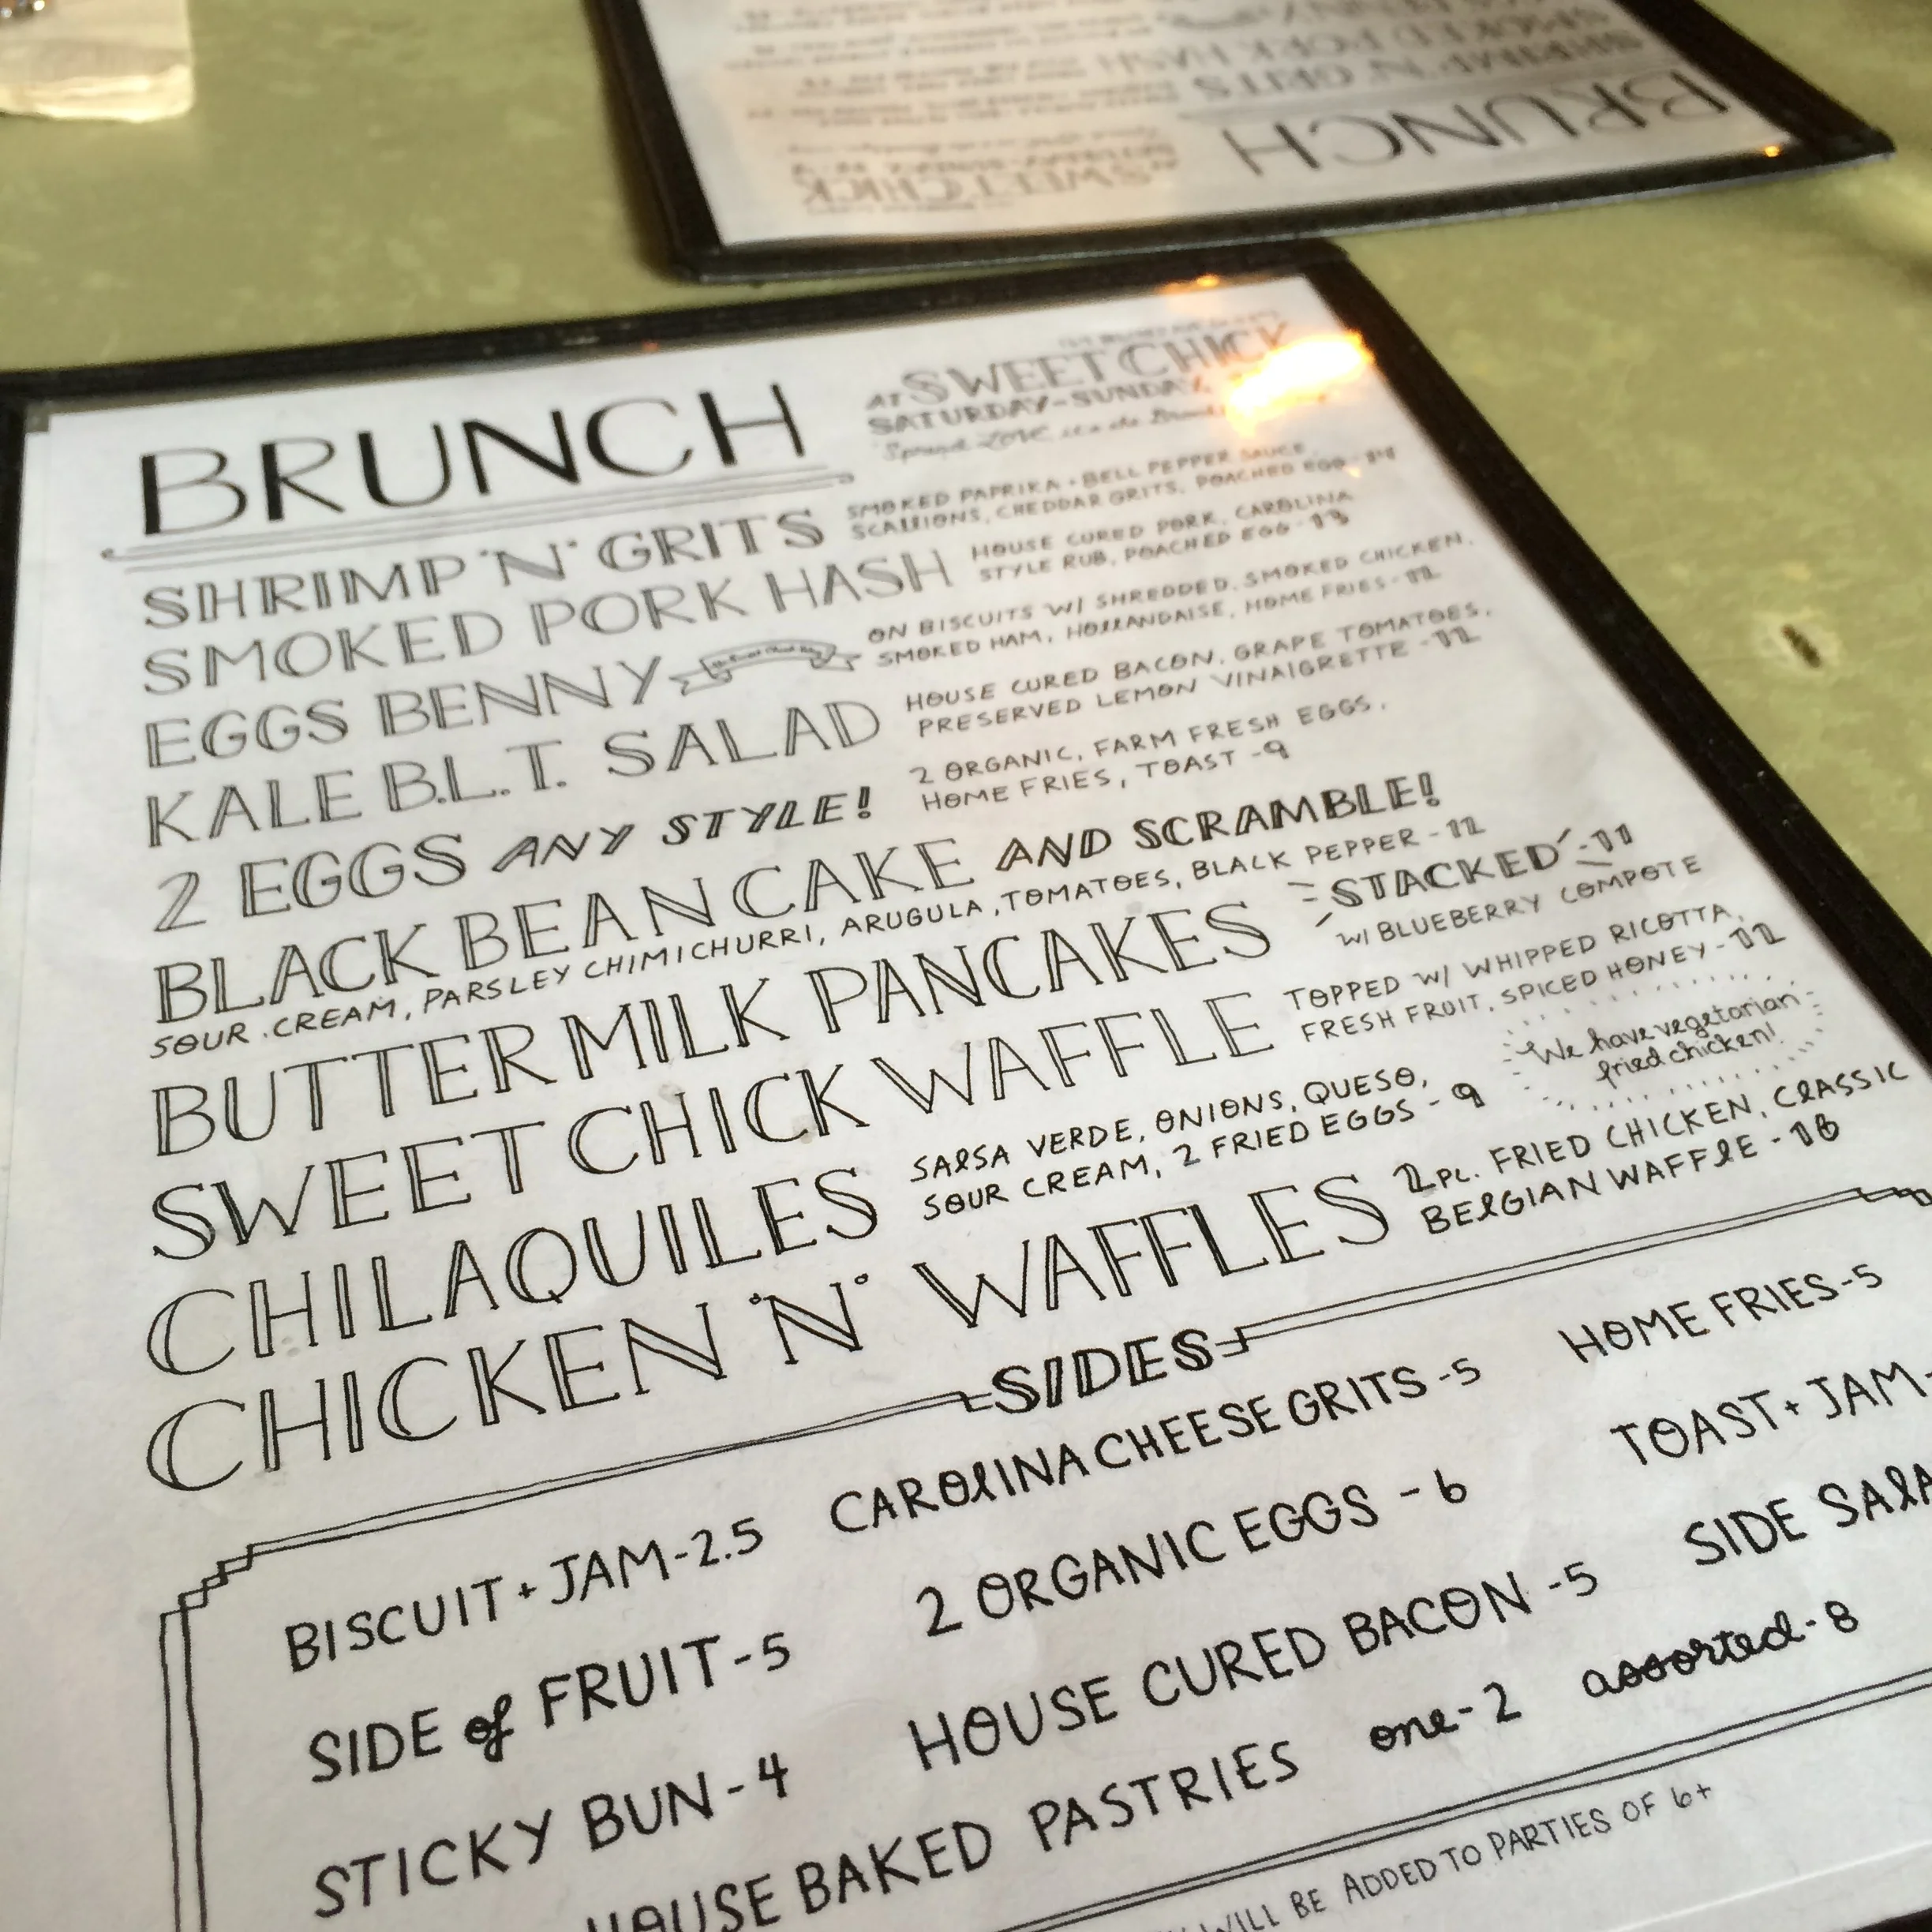 BRUNCH
AT SWEET CHICK
SATURDAY-SUNDAY
Spread LOVE, it's the
SHRIMP 'N' GRITS
SMOKED PAPRIKA + BELL PEPPER SAUCE,
SCALLIONS, CHEDDAR GRITS, POACHED EGG - 14
SMOKED PORK HASH
HOUSE CURED PORK, CAROLINA
STYLE RUB, POACHED EGG - 13
EGGS BENNY
ON BISCUITS W/ SHREDDED, SMOKED CHICKEN,
SMOKED HAM, HOLLANDAISE, HOME FRIES - 12
KALE B.L.T. SALAD
HOUSE CURED BACON, GRAPE TOMATOES,
PRESERVED LEMON VINAIGRETTE - 12
2 EGGS ANY STYLE!
2 ORGANIC, FARM FRESH EGGS,
HOME FRIES, TOAST - 9
BLACK BEAN CAKE AND SCRAMBLE!
SOUR CREAM, PARSLEY CHIMICHURRI, ARUGULA, TOMATOES, BLACK PEPPER - 12
BUTTERMILK PANCAKES
STACKED - 11
W/ BLUEBERRY COMPOTE
SWEET CHICK WAFFLE
TOPPED W/ WHIPPED RICOTTA,
FRESH FRUIT, SPICED HONEY - 12
We have vegetarian
fried chicken!
CHILAQUILES
SALSA VERDE, ONIONS, QUESO,
SOUR CREAM, 2 FRIED EGGS - 9
CHICKEN 'N' WAFFLES
2 PC. FRIED CHICKEN, CLASSIC
BELGIAN WAFFLE - 16
SIDES
BISCUIT + JAM - 2.5
CAROLINA CHEESE GRITS - 5
HOME FRIES - 5
SIDE of FRUIT - 5
2 ORGANIC EGGS - 6
TOAST + JAM -
STICKY BUN - 4
HOUSE CURED BACON - 5
SIDE
HOUSE BAKED PASTRIES one - 2 assorted - 8
WILL BE ADDED TO PARTIES OF 6+
BRUNCH
AT SWEET CHICK
SHRIMP 'N' GRITS
SMOKED PORK HASH